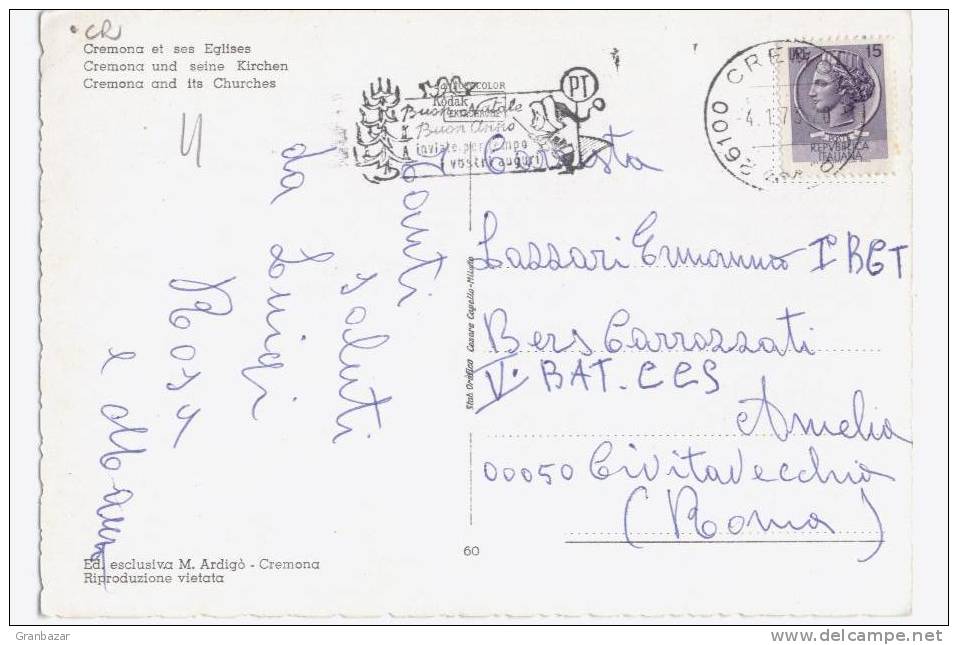 CR
Cremona et ses Eglises
Cremona und seine Kirchen
Cremona and its Churches
KODACOLOR
Kodak
Buon Natale
Buon Anno
inviate per tempo
i vostri auguri
PT
26100 CRE
-4.1.7
LIRE 15
REPVBBLICA
ITALIANA
tanti
saluti
da Luigi
Rosy
e
Lazzari Ermanno I° BGT
Bers Carrozzati
V° BAT. CCS
Amelia
00050 Civitavecchia
(Roma)
Stab. Grafico Cesare Capello-Milano
60
Ed. esclusiva M. Ardigò - Cremona
Riproduzione vietata
Granbazar
delcampe.net